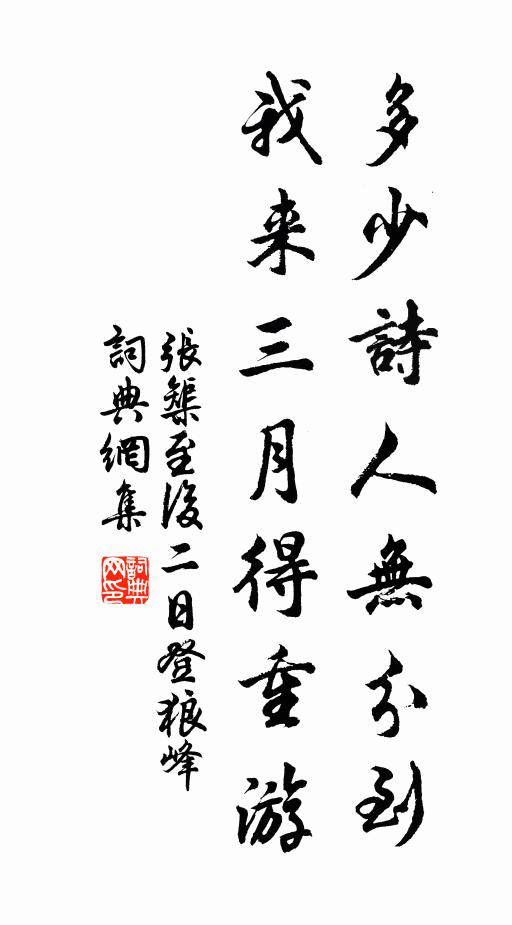 多少詩人無分到
我来三月得重游
張榘至後二日登狼峰
詞典網集
詞典网印